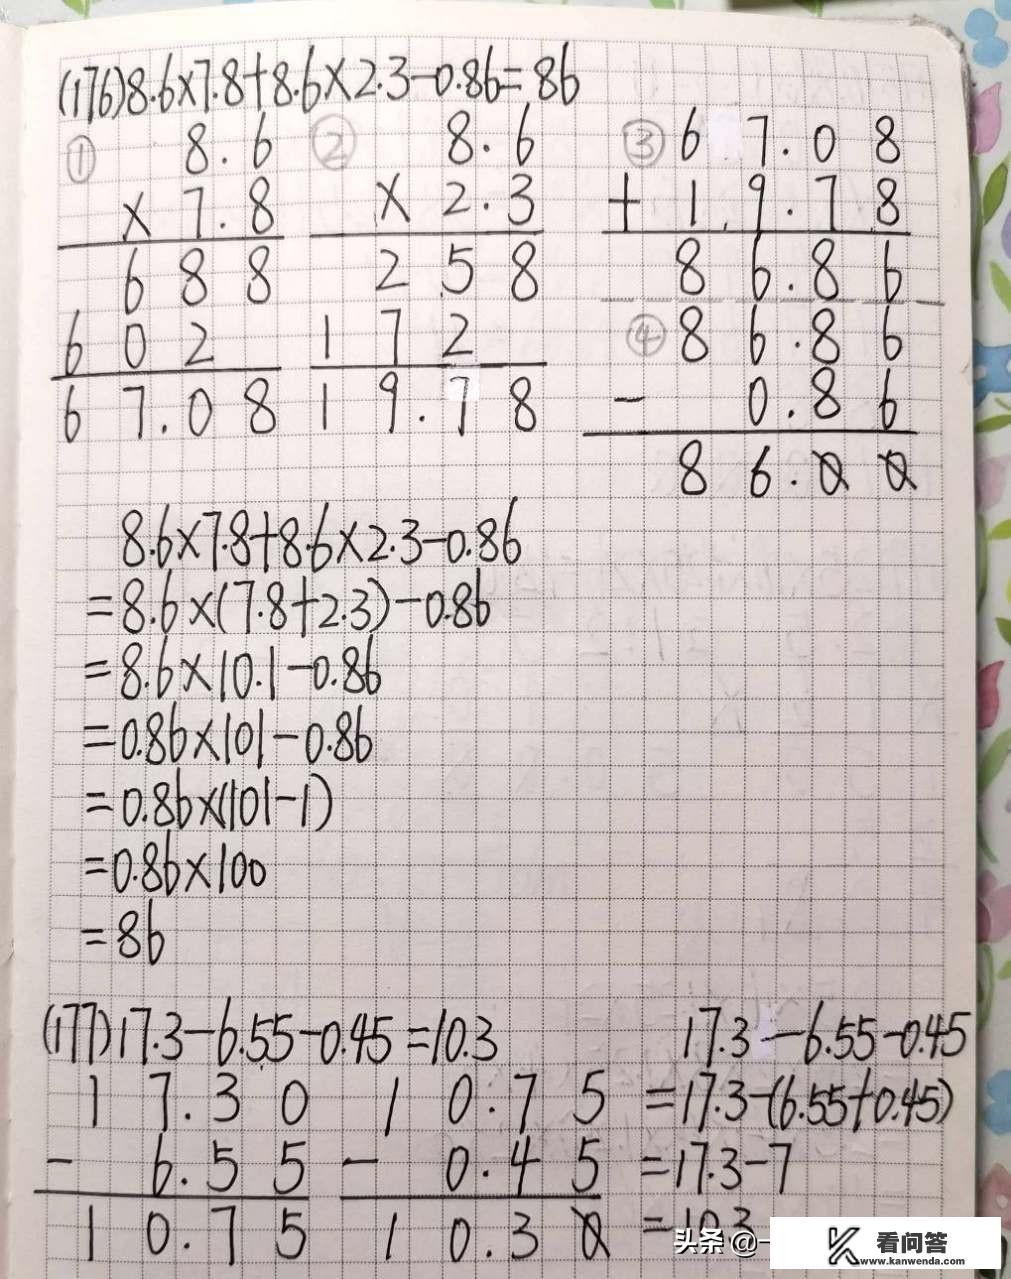 (176)8.6×7.8+8.6×2.3-0.86=86
① 8.6
×7.8
688
602
67.08
② 8.6
×2.3
258
172
19.78
③ 67.08
+19.78
86.86
④ 86.86
- 0.86
86.00
8.6×7.8+8.6×2.3-0.86
=8.6×(7.8+2.3)-0.86
=8.6×10.1-0.86
=0.86×101-0.86
=0.86×(101-1)
=0.86×100
=86
(177)17.3-6.55-0.45=10.3
17.30
- 6.55
10.75
10.75
- 0.45
10.30
17.3-6.55-0.45
=17.3-(6.55+0.45)
=17.3-7
=10.3
头条 @
看问答
www.kanwenda.com